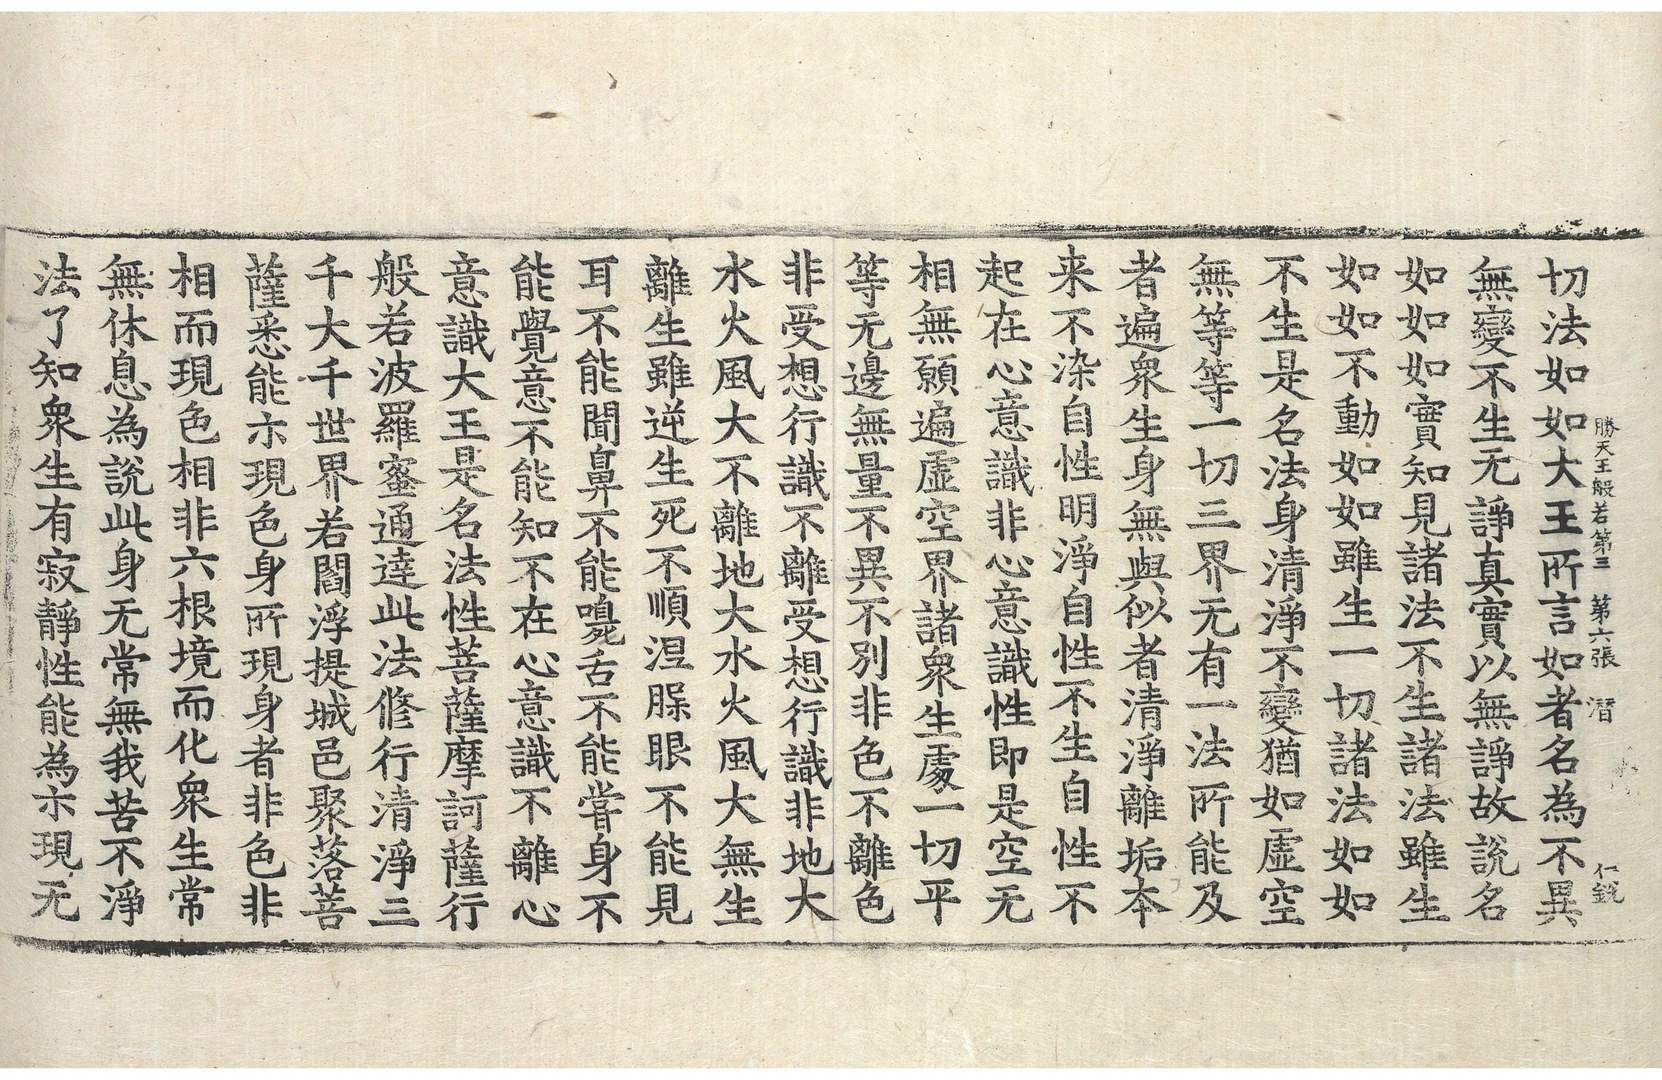 勝天王般若第三　第六張　潛　仁銳
切法如如大王所言如者名為不異
無變不生无諍真實以無諍故說名
如如如實知見諸法不生諸法雖生
如如不動如如雖生一切諸法如如
不生是名法身清淨不變猶如虛空
無等等一切三界无有一法所能及
者遍衆生身無與似者清淨離垢本
来不染自性明淨自性不生自性不
起在心意識非心意識性即是空无
相無願遍虛空界諸衆生處一切平
等无邊無量不異不別非色不離色
非受想行識不離受想行識非地大
水火風大不離地大水火風大無生
離生雖逆生死不順涅脲眼不能見
耳不能聞鼻不能嗅舌不能甞身不
能覺意不能知不在心意識不離心
意識大王是名法性菩薩摩訶薩行
般若波羅蜜通達此法修行清淨三
千大千世界若閻浮提城邑聚落菩
薩悉能示現色身所現身者非色非
相而現色相非六根境而化衆生常
無休息為說此身无常無我苦不淨
法了知衆生有寂靜性能為示現无